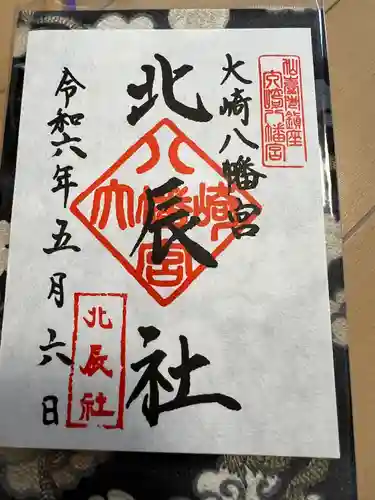 仙臺鎮座
大崎八幡宮
大崎八幡宮
北辰社
大崎八幡宮
令和六年五月六日
北辰社